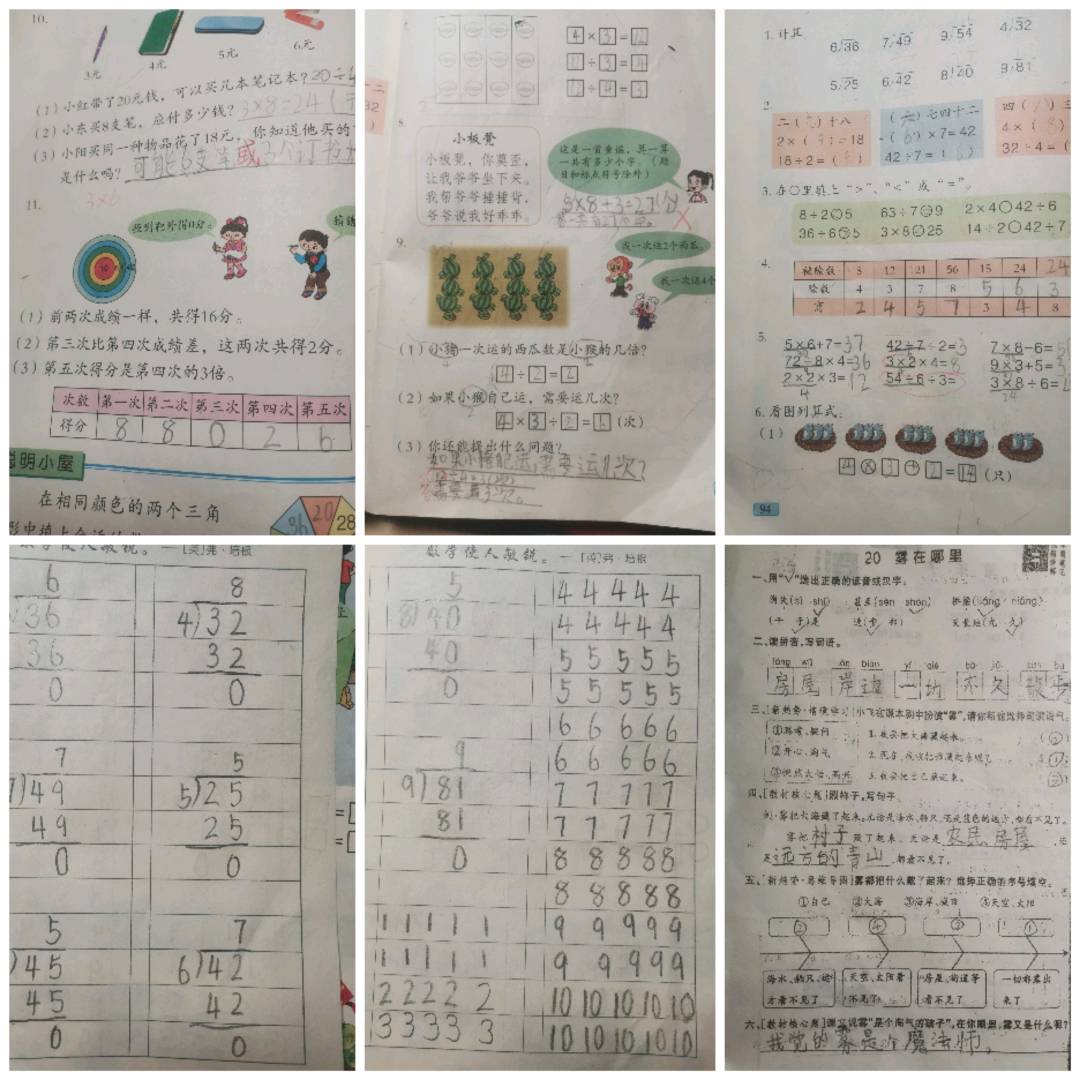 10.
3元
4元
5元
6元
(1)小红带了20元钱，可以买几本笔记本?20÷4
(2)小东买8支笔，应付多少钱?3×8=24(
(3)小阳买同一种物品花了18元，你知道他买的
是什么吗?可能6支笔或3个订书
3×6
11.
投到靶外得0分。
(1)前两次成绩一样，共得16分。
(2)第三次比第四次成绩差，这两次共得2分。
(3)第五次得分是第四次的3倍。
次数 第一次 第二次 第三次 第四次 第五次
得分 8 8 0 2 6
聪明小屋
在相同颜色的两个三角
36 20 28
4×3=12
12÷3=4
12÷4=3
8
小板凳
小板凳，你莫歪，
让我爷爷坐下来。
我帮爷爷捶捶背，
爷爷说我好乖乖。
这是一首童谣，算一算
一共有多少个字。(题
目和标点符号除外)
9.
我一次运2个西瓜。
我一次运4个
(1)小猪一次运的西瓜数是小猴的几倍?
4÷2=2
(2)如果小猴自己运，需要运几次?
(次)
(3)你还能提出什么问题?
需要运几次?
1.计算
6)36 7)49 9)54 4)32
5)25 6)42 8)40 9)81
2.
二( )十八
2×( )=18
18÷2=( )
(六)七四十二
(6)×7=42
42÷7=(6)
四( )三
4×(8)
32÷4=(
3.在○里填上“>”、“<”或“=”。
8÷2○5 63÷7○9 2×4○42÷6
36÷6○5 3×8○25 14÷2○42÷7
4.
被除数 8 12 21 56 15 24 24
除数 4 3 7 8 5 6 3
商 2 4 5 7 3 4 8
5.
5×6+7=37 42÷7÷2=3 7×8-6=5
72÷8×4=36 3×2×4=8 9×3+5=3
2×2×3=12 54÷6÷3= 3×8÷6=
4
6.看图列算式。
(1)
4×3+2=14(只)
94
数学使人敏锐。—[英]弗·培根
6 8
36 4)32
36 32
0 0
7 5
7)49 5)25
49 25
0 0
5 7
)45 6)42
45 42
0 0
数学使人敏锐。—[英]弗·培根
5 4 4 4 4 4
8)40 4 4 4 4 4
40 5 5 5 5 5
0 5 5 5 5 5
6 6 6 6 6
9 6 6 6 6 6
9)81 7 7 7 7 7
81 7 7 7 7 7
0 8 8 8 8 8
8 8 8 8 8
1 1 1 1 1 9 9 9 9 9
1 1 1 1 1 9 9 9 9 9
2 2 2 2 2 10 10 10 10 10
3 3 3 3 3 10 10 10 10 10
20 雾在哪里
一、用“√”选出正确的读音或汉字。
消失(sī shī) 甚至(sèn shèn) 桥梁(liáng niáng)
(干 于)是 天长地(九 久)
二、读拼音，写词语。
fáng wū àn biān yí qiè bù jiǔ sàn bù
房屋 岸边 一切 不久 散步
①思考、疑问
②开心、淘气
1.我要把大海藏起来。
3.我要把自己藏起来。
四、[教材核心题]照样子，写句子。
例:雾把大海藏了起来。无论是海水、船只，还是蓝色的远方，都看不见了。
雾把村子藏了起来。无论是农民、房屋，还
是远方的青山，都看不见了。
①自己 ②大海 ③海岸、城市 ④天空、太阳
② ④ ③ ①
海水、船只、远
方看不见了
天空、太阳看
不见了
房屋、街道等
看不见了
一切都露出
来了
六、[教材核心题]课文说雾“是个淘气的孩子”，在你眼里，雾又是什么呢?
我觉的雾是个魔法师。